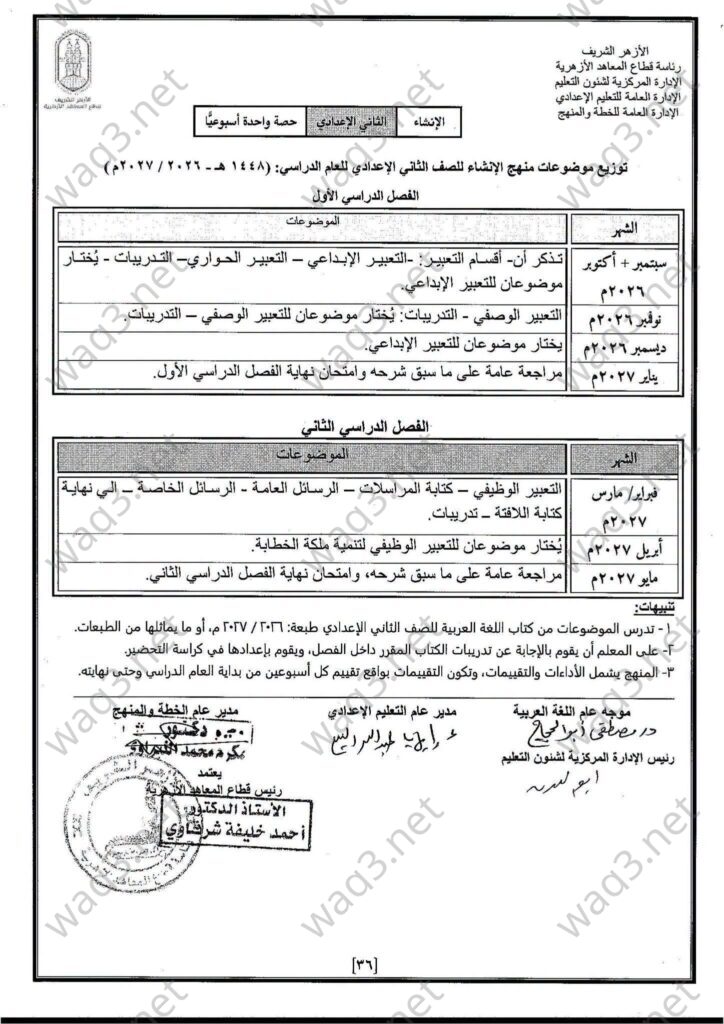 الأزهر الشريف
رئاسة قطاع المعاهد الأزهرية
الإدارة المركزية لشئون التعليم
الإدارة العامة للتعليم الإعدادي
الإدارة العامة للخطة والمنهج
الأزهر الشريف
قطاع المعاهد الأزهرية
الإنشاء | الثاني الإعدادي | حصة واحدة أسبوعيًّا
توزيع موضوعات منهج الإنشاء للصف الثاني الإعدادي للعام الدراسي: (١٤٤٨ هـ - ٢٠٢٦ / ٢٠٢٧م)
الفصل الدراسي الأول
الشهر | الموضوعات
سبتمبر + أكتوبر | تذكر أن- أقسام التعبير: -التعبير الإبداعي – التعبير الحواري– التدريبات - يُختار
٢٠٢٦م | موضوعان للتعبير الإبداعي.
نوفمبر ٢٠٢٦م | التعبير الوصفي - التدريبات: يُختار موضوعان للتعبير الوصفي – التدريبات.
ديسمبر ٢٠٢٦م | يختار موضوعان للتعبير الإبداعي.
يناير ٢٠٢٧م | مراجعة عامة على ما سبق شرحه وامتحان نهاية الفصل الدراسي الأول.
الفصل الدراسي الثاني
الشهر | الموضوعات
فبراير/ مارس | التعبير الوظيفي – كتابة المراسلات – الرسائل العامة - الرسائل الخاصة – الي نهاية
٢٠٢٧م | كتابة اللافتة – تدريبات.
أبريل ٢٠٢٧م | يُختار موضوعان للتعبير الوظيفي لتنمية ملكة الخطابة.
مايو ٢٠٢٧م | مراجعة عامة على ما سبق شرحه، وامتحان نهاية الفصل الدراسي الثاني.
تنبيهات:
١- تدرس الموضوعات من كتاب اللغة العربية للصف الثاني الإعدادي طبعة: ٢٠٢٦ / ٢٠٢٧ م، أو ما يماثلها من الطبعات.
٢- على المعلم أن يقوم بالإجابة عن تدريبات الكتاب المقرر داخل الفصل، ويقوم بإعدادها في كراسة التحضير.
٣- المنهج يشمل الأداءات والتقييمات، وتكون التقييمات بواقع تقييم كل أسبوعين من بداية العام الدراسي وحتى نهايته.
موجه عام اللغة العربية | مدير عام التعليم الإعدادي | مدير عام الخطة والمنهج
دكتور
رئيس الإدارة المركزية لشئون التعليم
يعتمد
رئيس قطاع المعاهد الأزهرية
الأستاذ الدكتور
أحمد خليفة شرقاوي
[٣٦]
waq3.net